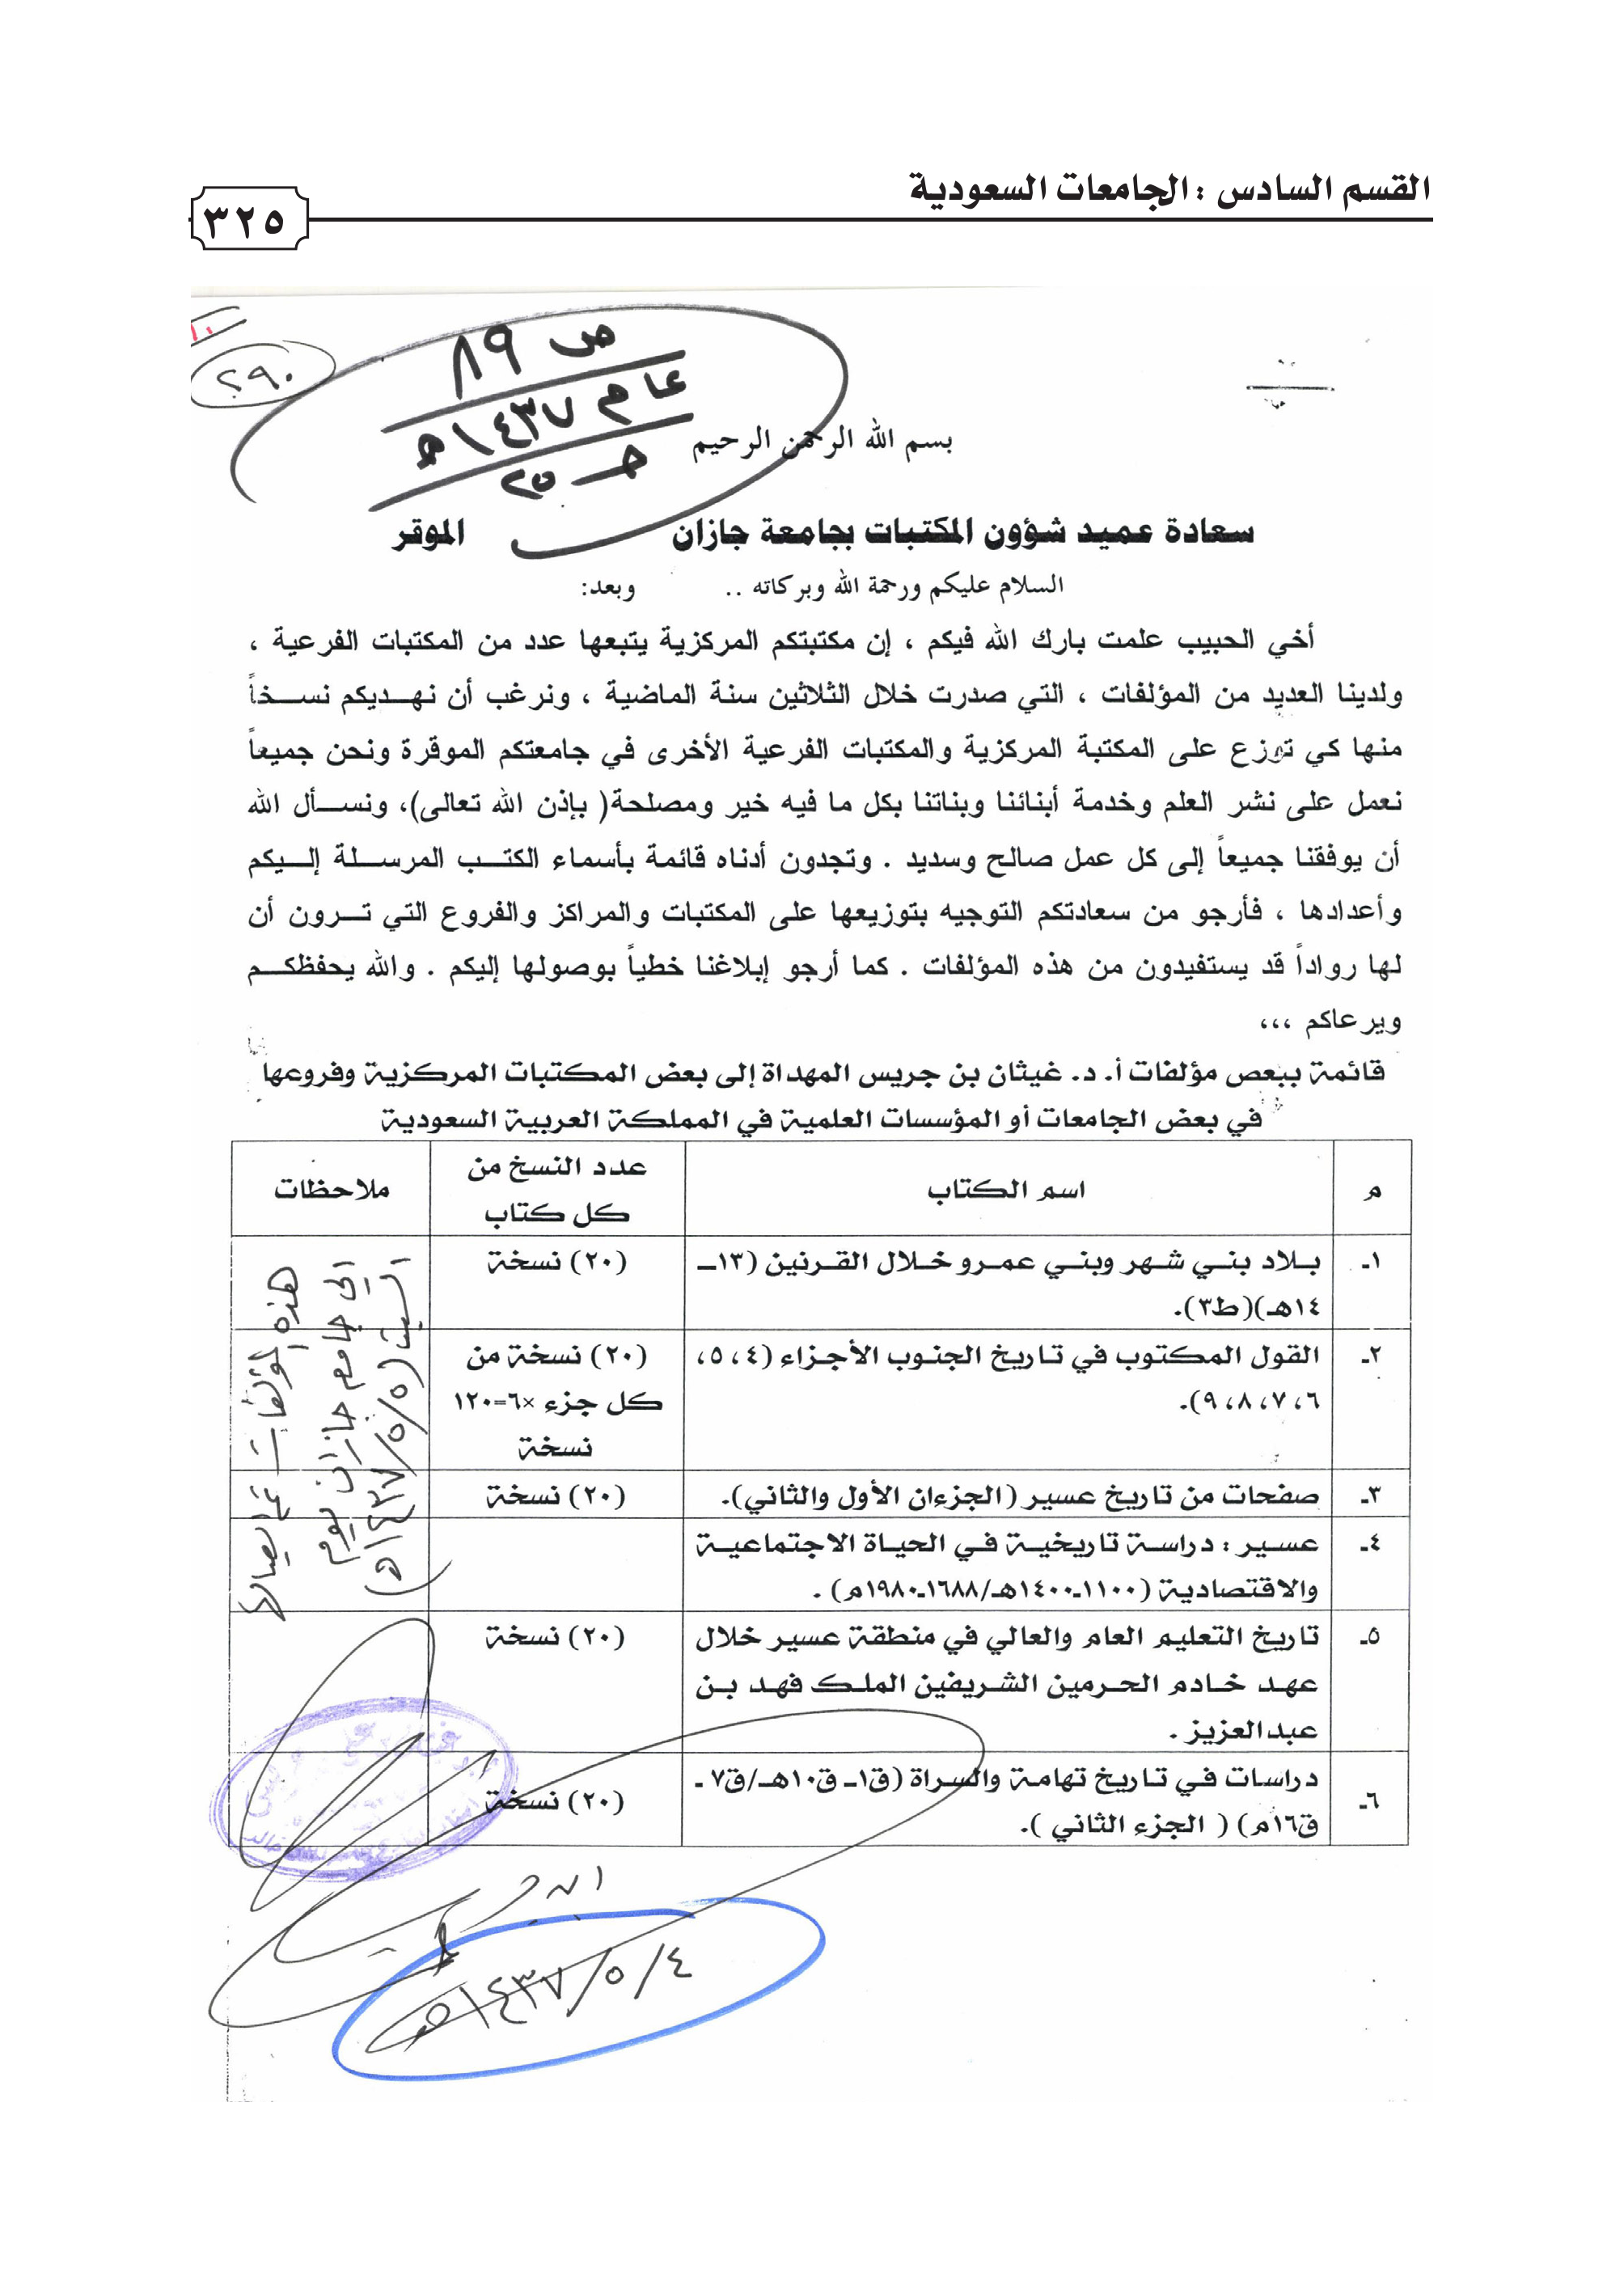 القسم السادس : الجامعات السعودية
٣٢٥
ص ٨٩
عام ١٤٣٧هـ
حـ ٢٥
٢٩٠
بسم الله الرحمن الرحيم
سعادة عميد شؤون المكتبات بجامعة جازان الموقر
السلام عليكم ورحمة الله وبركاته .. وبعد:
أخي الحبيب علمت بارك الله فيكم ، إن مكتبتكم المركزية يتبعها عدد من المكتبات الفرعية ،
ولدينا العديد من المؤلفات ، التي صدرت خلال الثلاثين سنة الماضية ، ونرغب أن نهديكم نسخاً
منها كي توزع على المكتبة المركزية والمكتبات الفرعية الأخرى في جامعتكم الموقرة ونحن جميعاً
نعمل على نشر العلم وخدمة أبنائنا وبناتنا بكل ما فيه خير ومصلحة( بإذن الله تعالى)، ونسأل الله
أن يوفقنا جميعاً إلى كل عمل صالح وسديد . وتجدون أدناه قائمة بأسماء الكتب المرسلة إليكم
وأعدادها ، فأرجو من سعادتكم التوجيه بتوزيعها على المكتبات والمراكز والفروع التي ترون أن
لها رواداً قد يستفيدون من هذه المؤلفات . كما أرجو إبلاغنا خطياً بوصولها إليكم . والله يحفظكم
ويرعاكم ،،،
قائمة ببعص مؤلفات أ. د. غيثان بن جريس المهداة إلى بعض المكتبات المركزية وفروعها
في بعض الجامعات أو المؤسسات العلمية في المملكة العربية السعودية
م اسم الكتاب عدد النسخ من كل كتاب ملاحظات
١ـ بلاد بني شهر وبني عمرو خلال القرنين (١٣ـ (٢٠) نسخة
١٤هـ)(ط٣).
٢ـ القول المكتوب في تاريخ الجنوب الأجزاء (٤، ٥، (٢٠) نسخة من
٦، ٧، ٨، ٩). كل جزء ×٦=١٢٠
نسخة
٣ـ صفحات من تاريخ عسير (الجزءان الأول والثاني). (٢٠) نسخة
٤ـ عسير : دراسة تاريخية في الحياة الاجتماعية
والاقتصادية (١١٠٠ـ١٤٠٠هـ/١٦٨٨ـ١٩٨٠م) .
٥ـ تاريخ التعليم العام والعالي في منطقة عسير خلال (٢٠) نسخة
عهد خادم الحرمين الشريفين الملك فهد بن
عبدالعزيز .
٦ـ دراسات في تاريخ تهامة والسراة (ق١ـ ق١٠هـ/ق٧ ـ (٢٠) نسخة
ق١٦م) ( الجزء الثاني ).
هذه المؤلفات تم ايصالها
إلى جامعة جازان يوم
السبت (٥/٥/١٤٣٧هـ)
٤/٥/١٤٣٧هـ